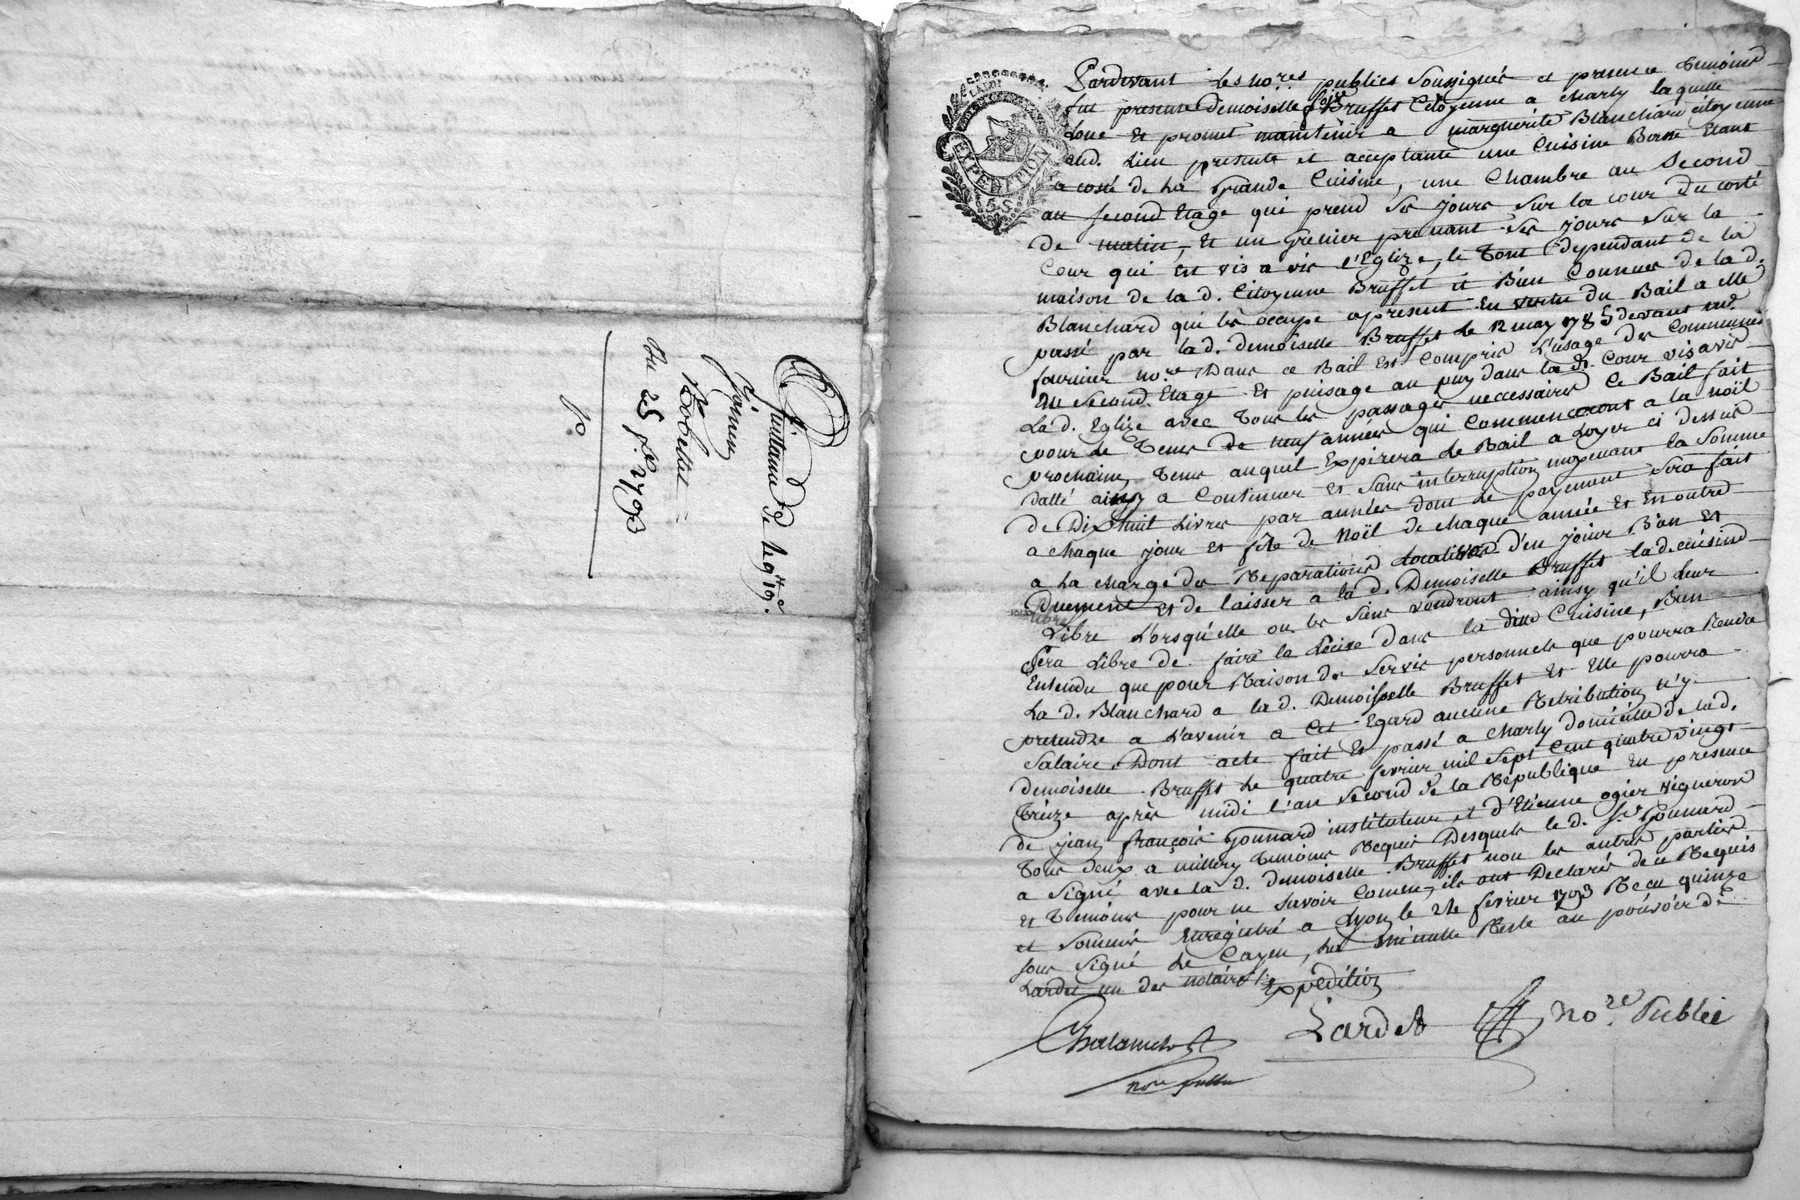 Quittance de legs
Jomen
Robelin
du 25 fre 1793
Pardevant les nores publics soussignés et presence temoins
fut presente demoiselle Bruffet Citoyenne a charly laquelle
Loue et promet maintenir a marguerite Blanchard citoyenne
aud. Lieu presente et acceptante une Cuisine Borne Etant
a costé de La Grande Cuisine, une Chambre au Second
au second Etage qui prend ses jours sur la cour du costé
de matin, Et un Grenier prenant ses jours sur la
Cour qui Est vis a vis l'Eglize, le Tout Dependant de la
maison de la d. Citoyenne Bruffet et Bien Connues de la d.
Blanchard qui les occupe apresent En vertu du Bail a elle
passé par la d. demoiselle Bruffet le 12 may 1785 devant me
fournier nore. Dans ce Bail Est Compris L'usage des Communes
au second Etage Et puisage au puy dans la d. Cour vis avis
La d. Eglize avec Tous les passages neccessaires Ce Bail fait
pour le Tems de neuf années qui Commenceront a la noël
prochaine, Tems auquel Expirera le Bail a Loyer ci dessus
datté ainsy a Continuer Et sans interruption moyenant la Somme
de Dix huit Livres par années dont le payement Sera fait
a chaque jour et fête de Noël de chaque année Et En outre
a La charge des Reparations Locatives d'en jouir Bien Et
Duement Et de laisser a la d. Demoiselle Bruffet la d. cuisine
Libre Lorsqu'elle ou les siens voudront ainsy qu'il leur
Sera Libre de faire la Lécive dans la ditte Cuisine, Bien
Entendu que pour Raison des Servis personnels que pourra Rendre
La d. Blanchard a la d. Demoiselle Bruffet Et Elle pourra
pretendre a L'avenir a Cet Egard aucune Retribution n'y
Salaire. Dont acte fait Et passé a charly domicille de la d.
demoiselle Bruffet Le quatre fevrier mil Sept Cent quatre vingt
Treize après midi l'an Second de la République En présence
de jean françois Gonnard instituteur et d'Etienne ogier vigneron
Tous deux a millery Temoins Requis Desquels le d. Sr Gonnard
a signé avec la d. demoiselle Bruffet non les autres parties
et Temoins pour ne savoir Comme ils ont Declarés de ce Requis
et sommés Enregistré a Lyon le fevrier 1793 Recu quinze
sous Signé Le Cayeu, la minutte Reste au pouvoir de
Lardet un des notaires Expédition
Lardet nore Public
nore public
LA LOI
EXPEDITION
5.S.